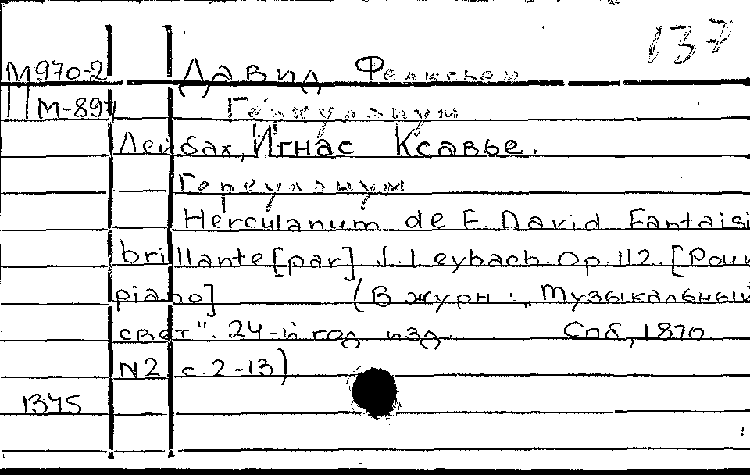 137
М970-2 Давид Фелисьен
М-897 Геркуланум
Лейбах, Игнас Ксавье.
Геркуланум
Herculanum de F. David Fantaisi
brillante [par] J. Leybach Op. 112. [Pour
piano] (В журн.: "Музыкальный
свет". 24-й год изд. Спб, 1870
N2 с. 2-13)
1375